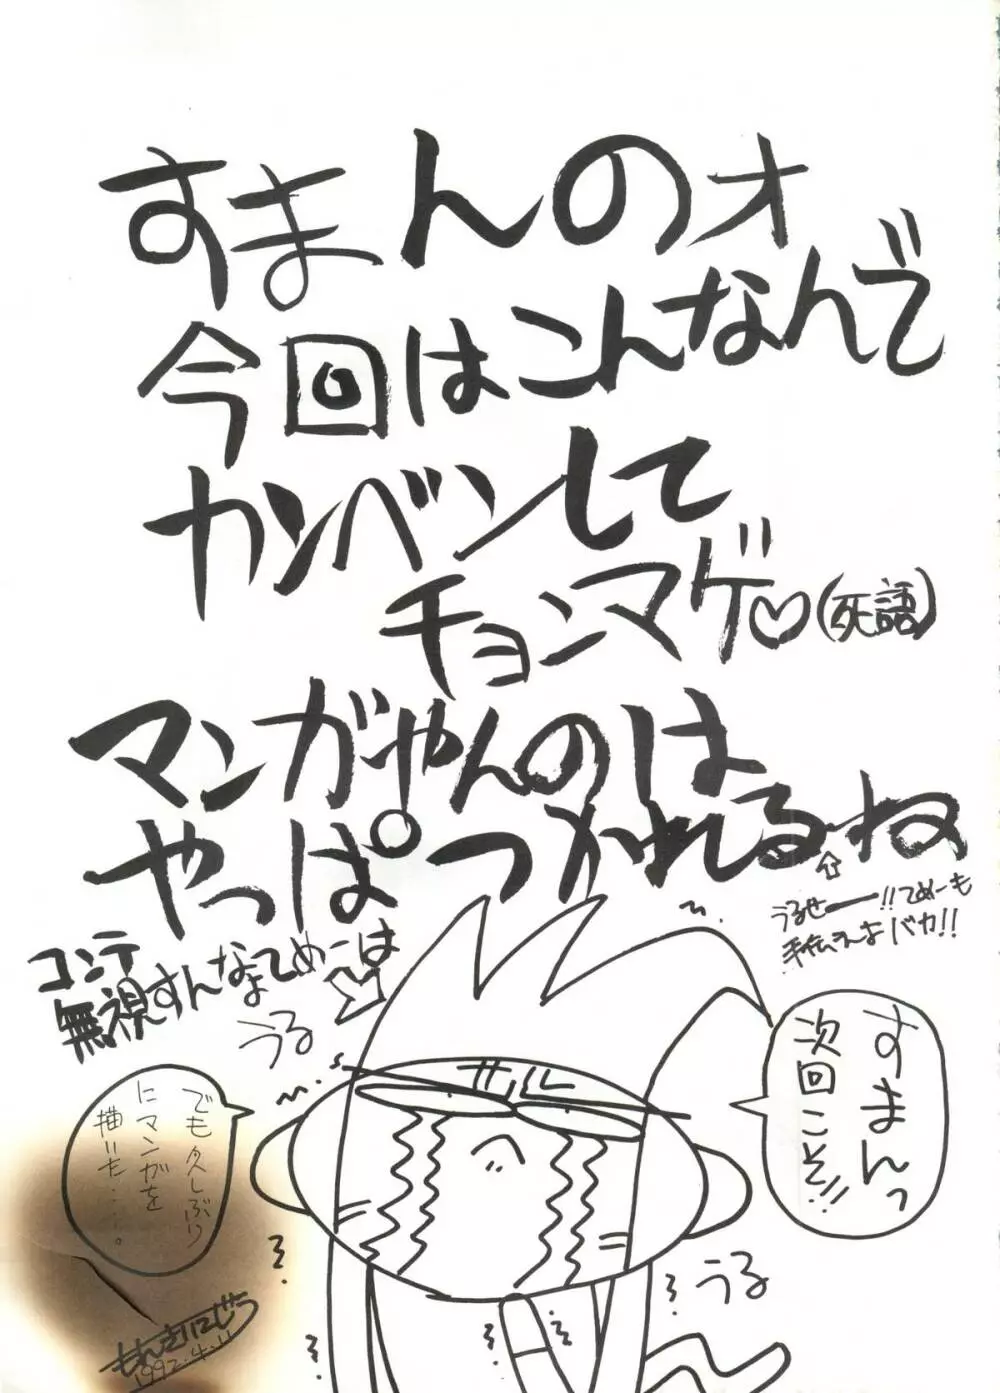 すまんのォ
今回はこんなんで
カンベンして
チョンマゲ♡(死語)
マンガやんのは
やっぱつかれるね
⇧
うるせー!!てめーも
手伝えよバカ!!
コンテ
無視すんなてめーは
うる
すまんっ
次回こそ!!
でも久しぶり
にマンガを
描いた‥‥。
うる
もんきいにじう
1992.4.11